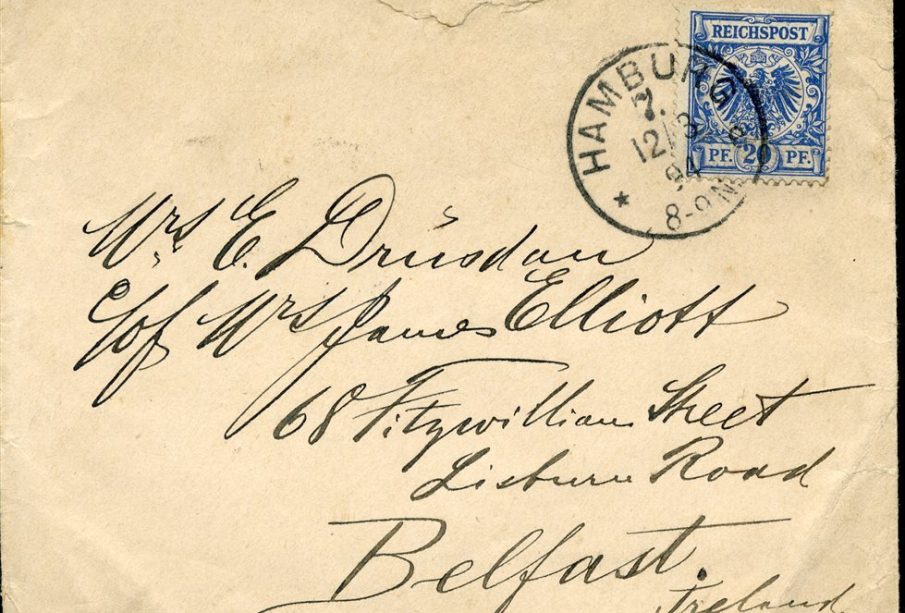 REICHSPOST
PF. 20 PF.
HAMBURG
7.
12/3
94
8-9N
Mrs E. Drüsdau
c/of Mrs James Elliott
68 Fitzwilliam Street
Lisburn Road
Belfast.
Ireland